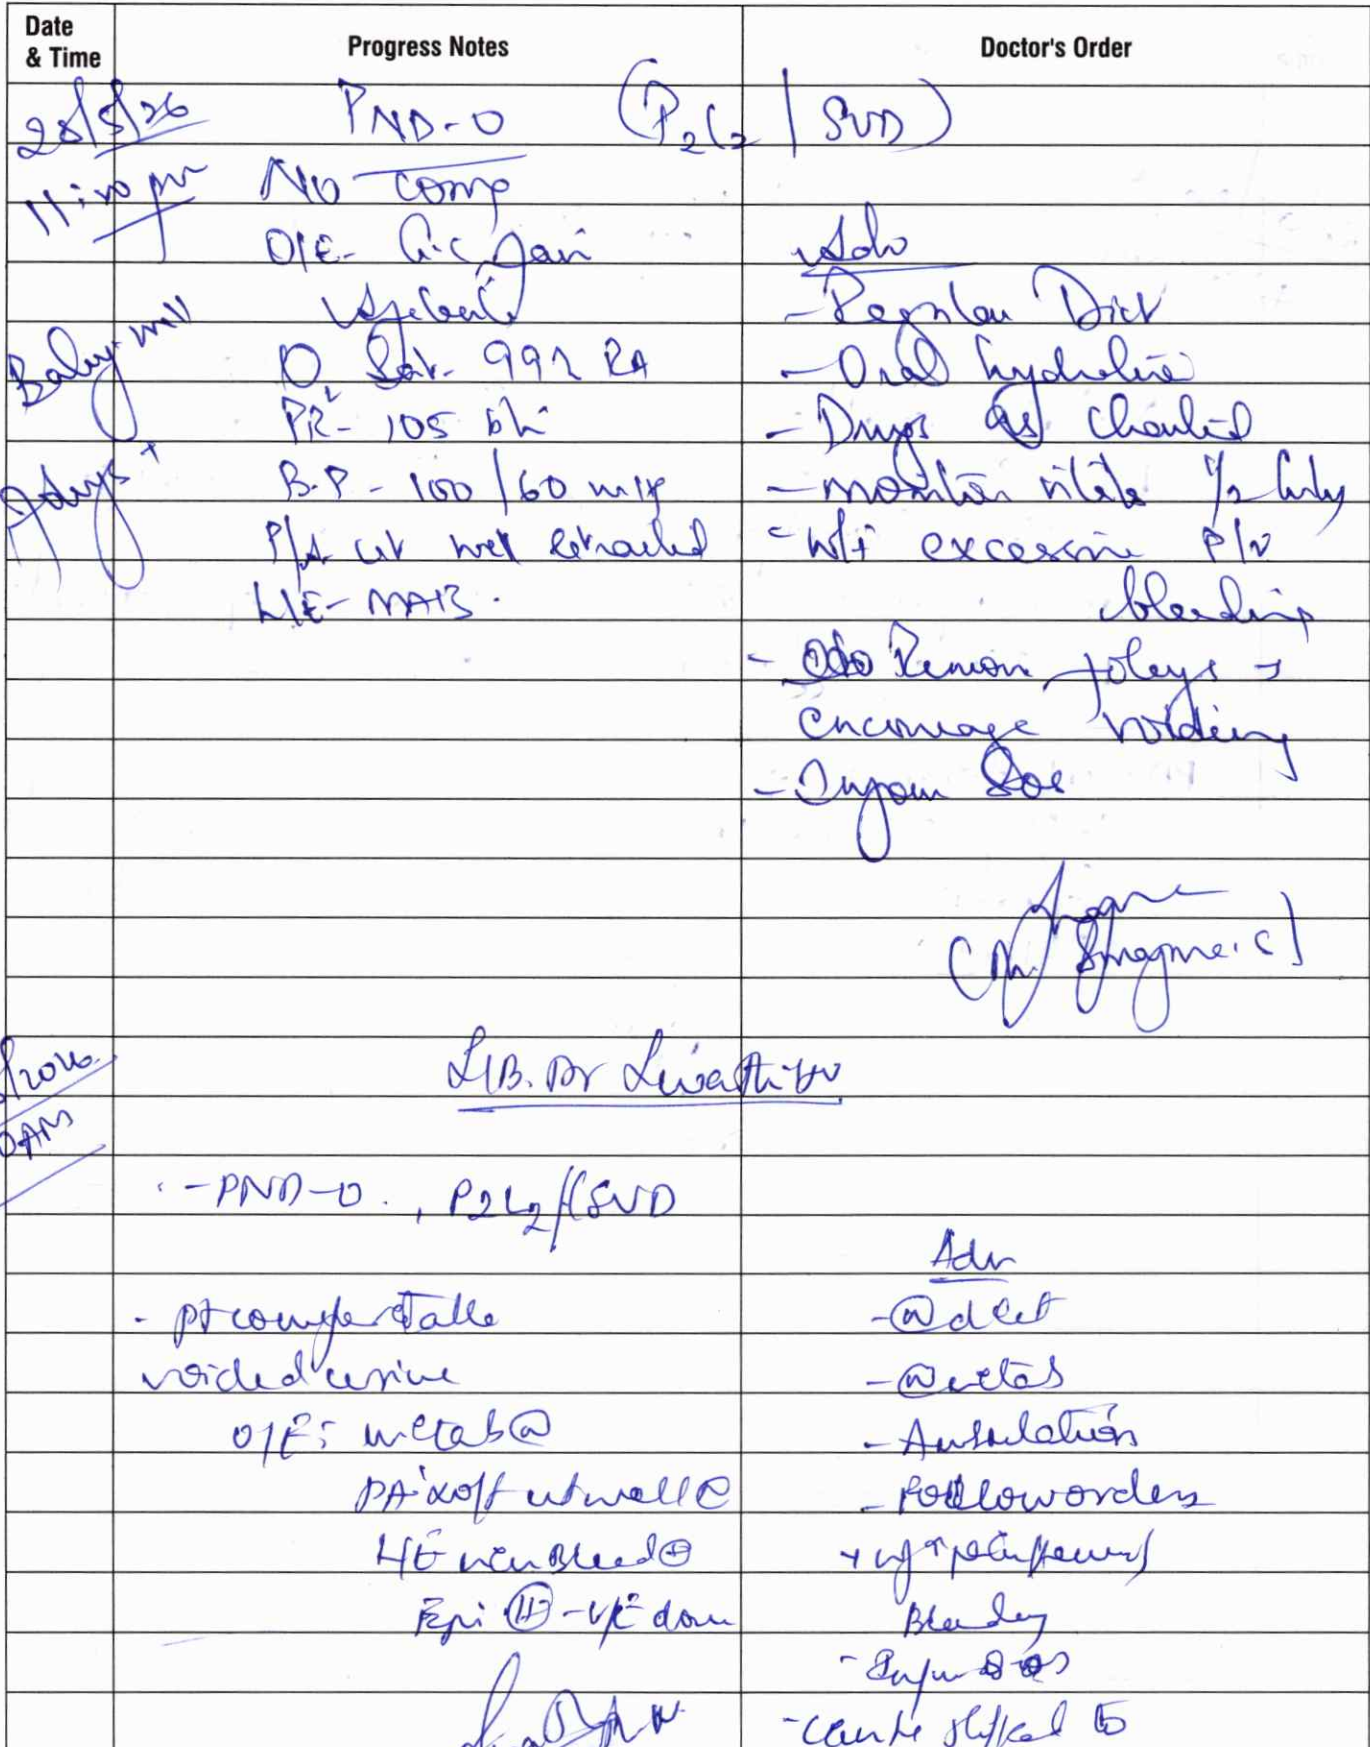 Date & Time
Progress Notes
Doctor's Order
28/5/26
PND-0 (P2L2 | SVD)
11:10 pm
No comp
O/E- G.C fair
Adv
Afebrile
- Regular Diet
Baby-well
O2 Sat- 99% RA
- Oral hydration
PR- 105 b/m
- Drugs as charted
B.P - 100/60 mmHg
- monitor vitals 1/2 hrly
P/A ut well retracted
- W/f excessive P/V
L/E- NAB.
bleeding
- Remove foleys →
encourage voiding
- Inform SOS
(Dr.
S/B. Dr
- PND-0. , P2L2/(SVD
Adv
- pt comfortable
- (N) diet
voided urine
- (N) vitals
O/E: vitals (N)
- Ambulation
PA: soft ut well (C)
- Follow orders
L/E Bleed (+)
Bleeding
Epi (H) - V/E done
- Inform SOS
- can be shifted to